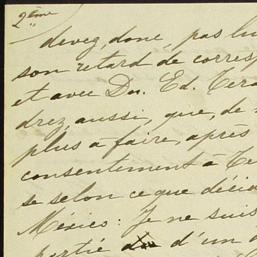 2ème
devez, donc pas lu
son retard de corres
et avec Dn. Ed. Tera
drez, aussi, que, de
plus à faire, après
consentement à Te
se selon ce que décid
México: Je ne suis
partié d'un